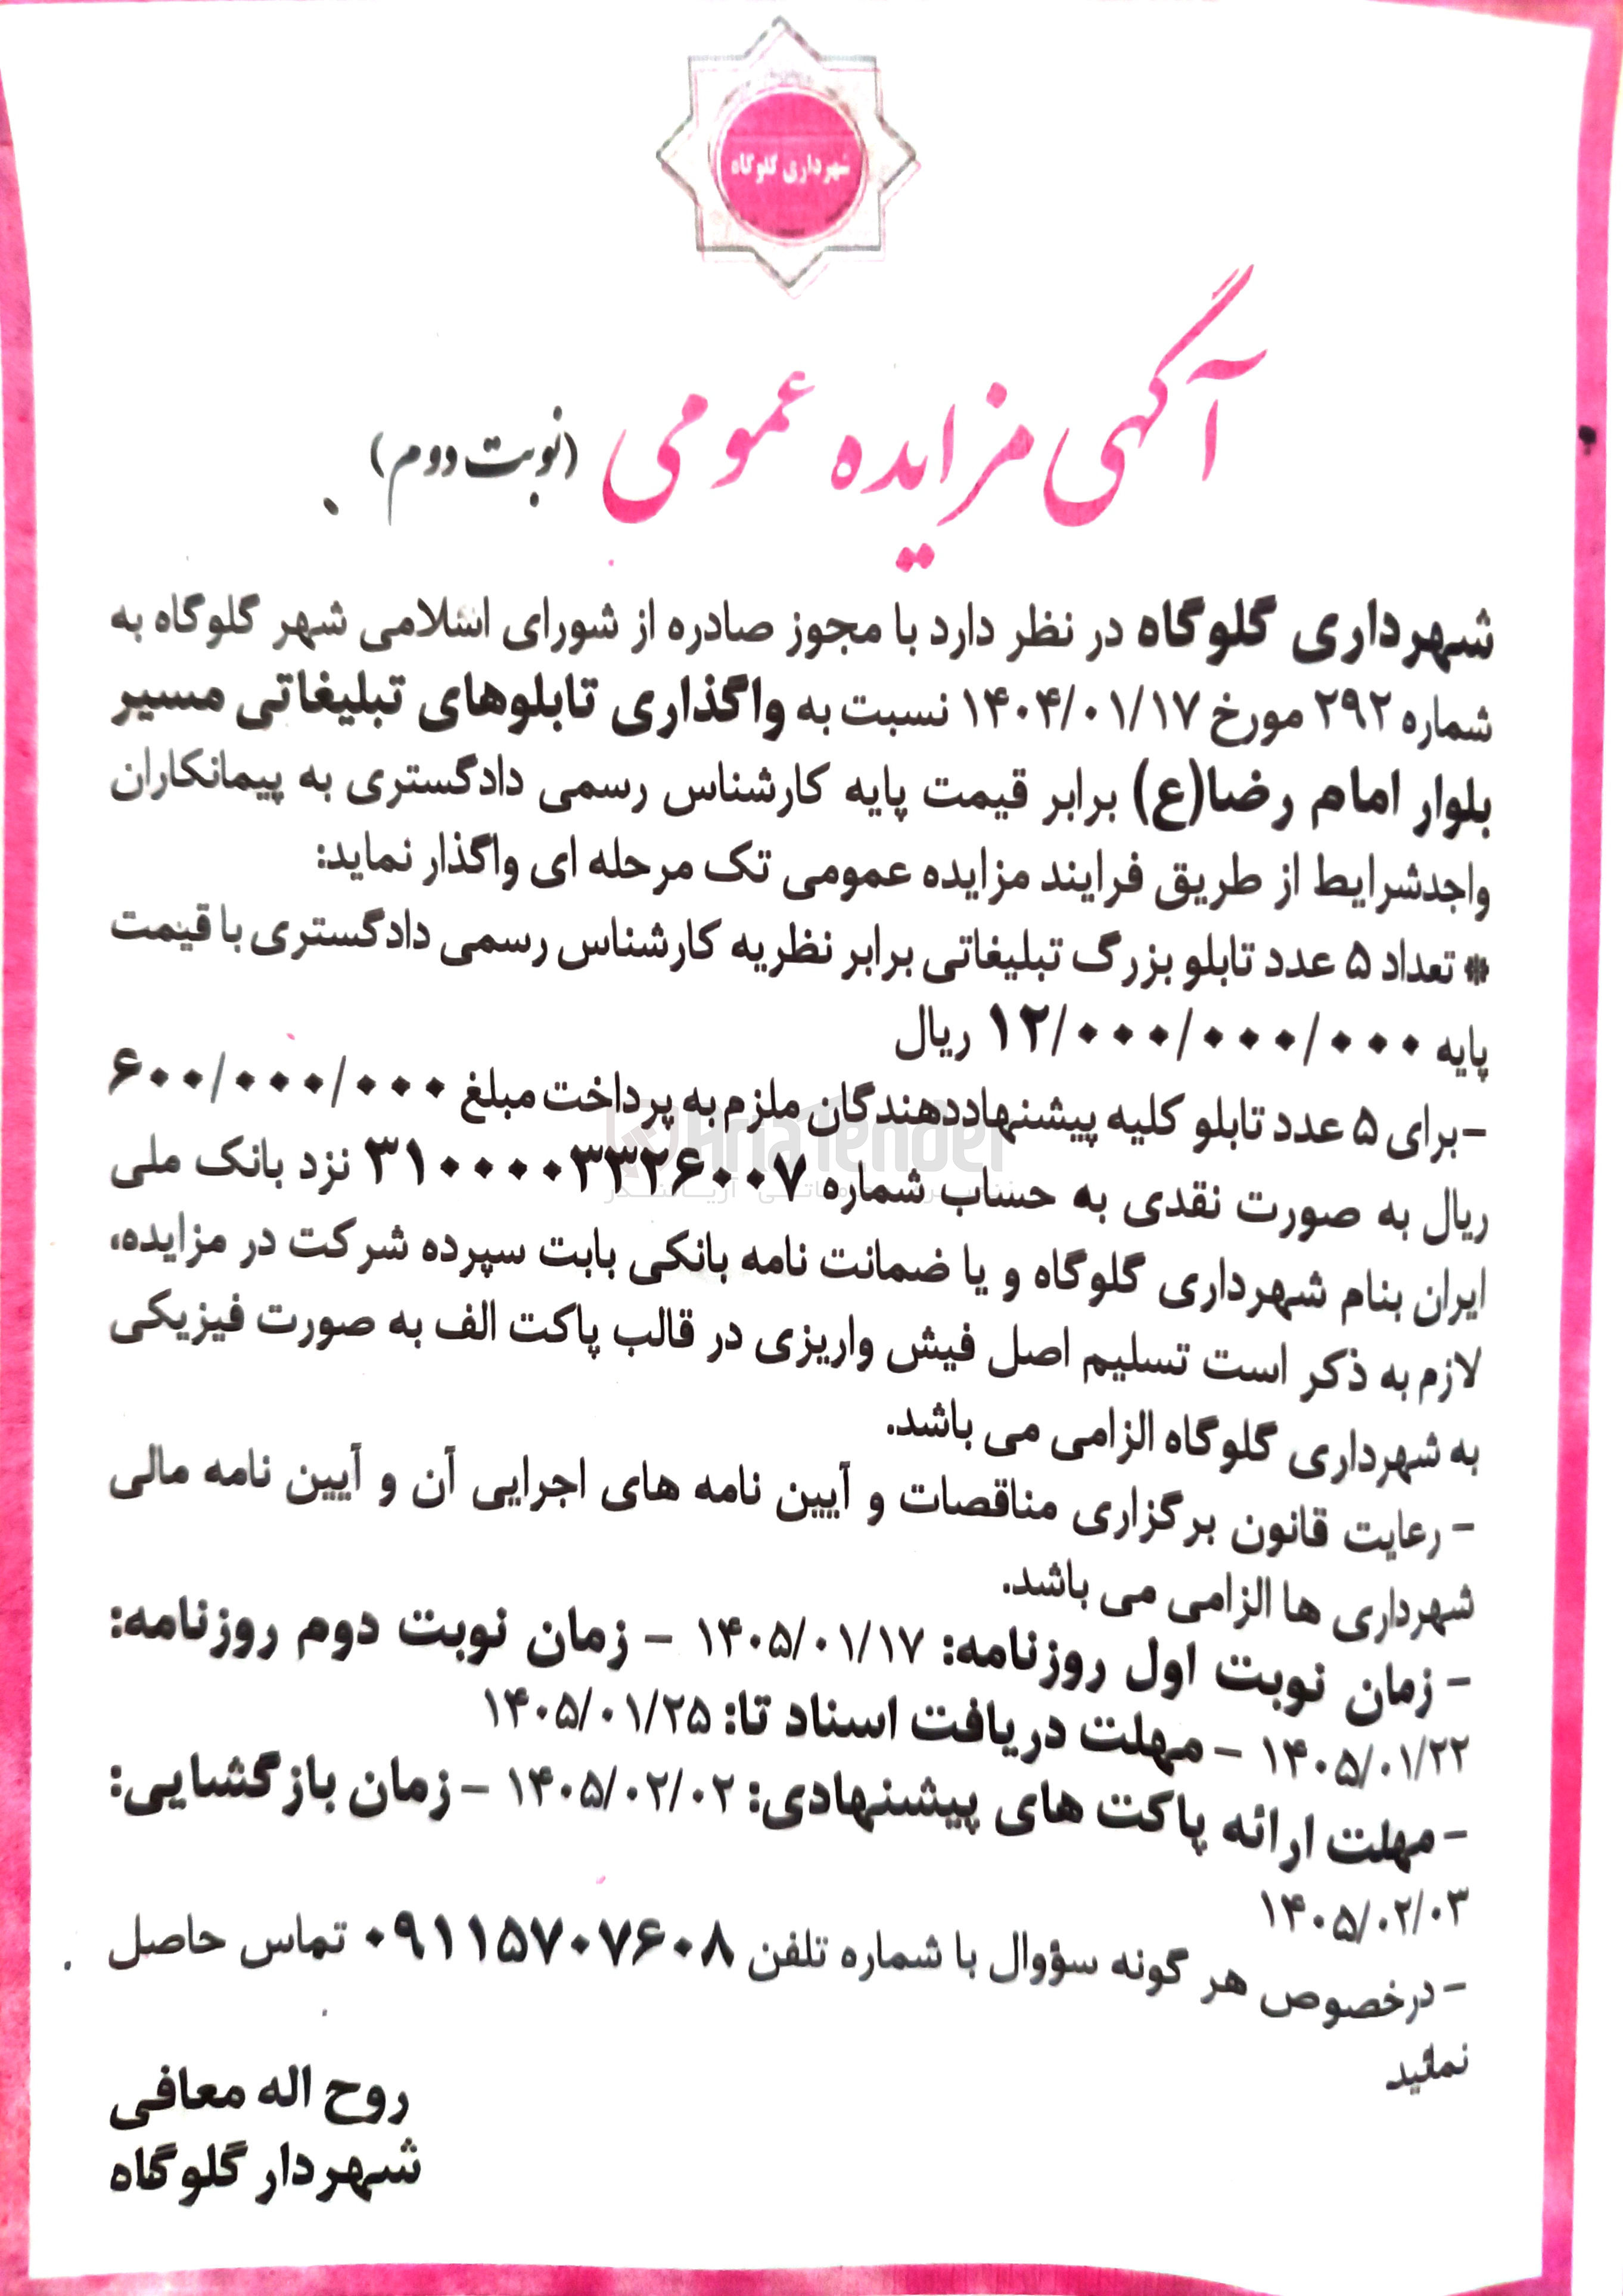 شهرداری گلوگاه
آگهی مزایده عمومی (نوبت دوم)
شهرداری گلوگاه در نظر دارد با مجوز صادره از شورای اسلامی شهر گلوگاه به
شماره ۲۹۲ مورخ ۱۴۰۴/۰۱/۱۷ نسبت به واگذاری تابلوهای تبلیغاتی مسیر
بلوار امام رضا(ع) برابر قیمت پایه کارشناس رسمی دادگستری به پیمانکاران
واجدشرایط از طریق فرایند مزایده عمومی تک مرحله ای واگذار نماید:
* تعداد ۵ عدد تابلو بزرگ تبلیغاتی برابر نظریه کارشناس رسمی دادگستری با قیمت
پایه ۱۲/۰۰۰/۰۰۰/۰۰۰ ریال
-برای ۵ عدد تابلو کلیه پیشنهاددهندگان ملزم به پرداخت مبلغ ۶۰۰/۰۰۰/۰۰۰
ریال به صورت نقدی به حساب شماره ۳۱۰۰۰۰۳۳۲۶۰۰۷ نزد بانک ملی
ایران بنام شهرداری گلوگاه و یا ضمانت نامه بانکی بابت سپرده شرکت در مزایده،
لازم به ذکر است تسلیم اصل فیش واریزی در قالب پاکت الف به صورت فیزیکی
به شهرداری گلوگاه الزامی می باشد.
- رعایت قانون برگزاری مناقصات و آیین نامه های اجرایی آن و آیین نامه مالی
شهرداری ها الزامی می باشد.
- زمان نوبت اول روزنامه: ۱۴۰۵/۰۱/۱۷ - زمان نوبت دوم روزنامه:
۱۴۰۵/۰۱/۲۲ - مهلت دریافت اسناد تا: ۱۴۰۵/۰۱/۲۵
- مهلت ارائه پاکت های پیشنهادی: ۱۴۰۵/۰۲/۰۲ - زمان بازگشایی:
۱۴۰۵/۰۲/۰۳
- درخصوص هر گونه سؤوال با شماره تلفن ۰۹۱۱۵۷۰۷۶۰۸ تماس حاصل
نمائید
روح اله معافی
شهردار گلوگاه
AriaTender